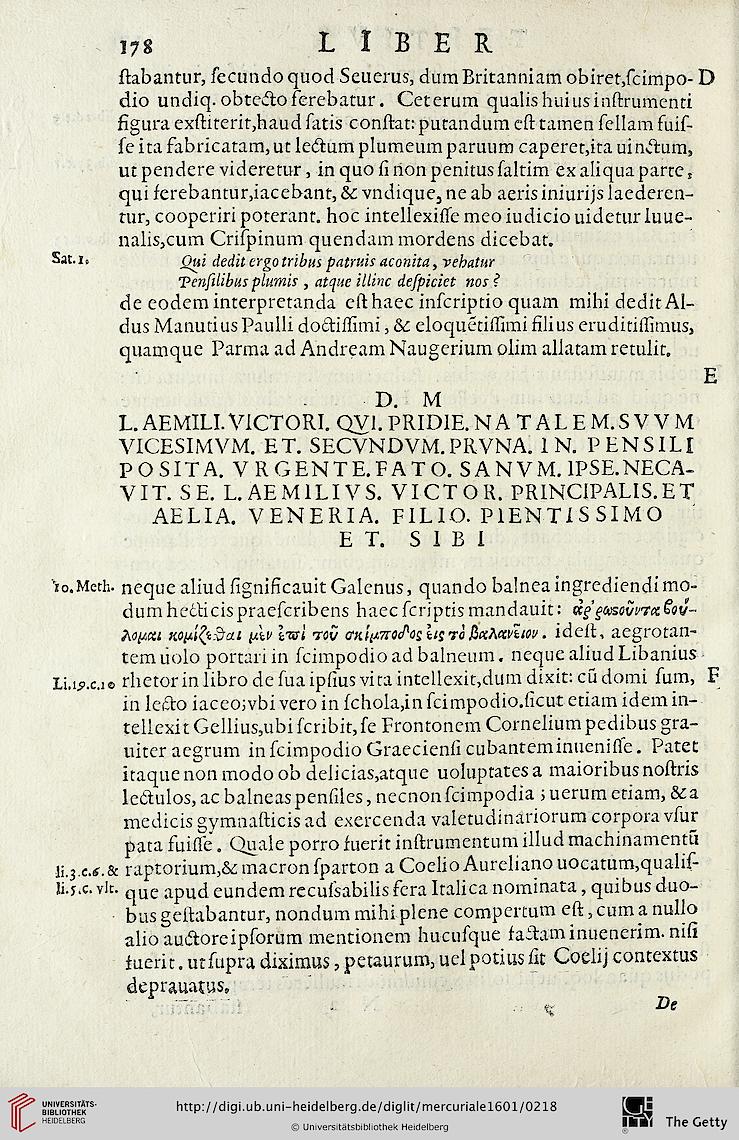 178 LIBER
stabantur, secundo quod Seuerus, dum Britanniam obiret,scimpo- D
dio undiq. obtecto ferebatur. Ceterum qualis huius instrumenti
figura exstiterit,haud satis constat: putandum est tamen sellam fuis-
se ita fabricatam, ut lectum plumeum paruum caperet,ita uinctum,
ut pendere videretur, in quo si non penitus saltim ex aliqua parte,
qui ferebantur,iacebant, & vndique, ne ab aeris iniurijs laederen-
tur, cooperiri poterant. hoc intellexisse meo iudicio uidetur Iuue-
nalis,cum Crispinum quendam mordens dicebat.
Sat. 1. Qui dedit ergo tribus patruis aconita, vehatur
Pensilibus plumis, atque illinc despiciet nos?
de eodem interpretanda est haec inscriptio quam mihi dedit Al-
dus Manutius Paulli doctissimi, & eloquētissimi filius eruditissimus,
quamque Parma ad Andream Naugerium olim allatam retulit.
E
D. M
L. AEMILI. VICTORI. QVI. PRIDIE. NATALEM. SVVM
VICESIMVM. ET. SECVNDVM. PRVNA. IN. PENSILI
POSITA. VRGENTE. FATO. SANVM. IPSE. NECA-
VIT. SE. L. AEMILIVS. VICTOR. PRINCIPALIS. ET
AELIA. VENERIA. FILIO. PIENTISSIMO
ET. SIBI
10. Meth. neque aliud significauit Galenus, quando balnea ingrediendi mo-
dum hecticis praescribens haec scriptis mandauit: ἀῤῥωστοῦντα βού-
λομαι κομίζεσθαι μὲν ἐπὶ τοῦ σκίμποδος εἰς τὸ βαλανεῖον. idest, aegrotan-
tem uolo portari in scimpodio ad balneum. neque aliud Libanius
Li.19.c.10 rhetor in libro de sua ipsius vita intellexit,dum dixit: cū domi sum, F
in lecto iaceo;vbi vero in schola,in scimpodio.sicut etiam idem in-
tellexit Gellius,ubi scribit, se Frontonem Cornelium pedibus gra-
uiter aegrum in scimpodio Graeciensi cubantem inuenisse. Patet
itaque non modo ob delicias,atque uoluptates a maioribus nostris
lectulos, ac balneas pensiles, necnon scimpodia; uerum etiam, & a
medicis gymnasticis ad exercenda valetudinariorum corpora vsur
pata fuisse. Quale porro fuerit instrumentum illud machinamentū
li.3.c.6. & raptorium,& macron sparton a Coelio Aureliano uocatum,qualis-
li.5.c. vlt. que apud eundem recussabilis fera Italica nominata, quibus duo-
bus gestabantur, nondum mihi plene compertum est, cum a nullo
alio auctore ipsorum mentionem hucusque factam inuenerim. nisi
fuerit. ut supra diximus, petaurum, uel potius sit Coelij contextus
deprauatus.
De
UNIVERSITÄTS-
BIBLIOTHEK
HEIDELBERG
http://digi.ub.uni-heidelberg.de/diglit/mercuriale1601/0218
© Universitätsbibliothek Heidelberg
The Getty